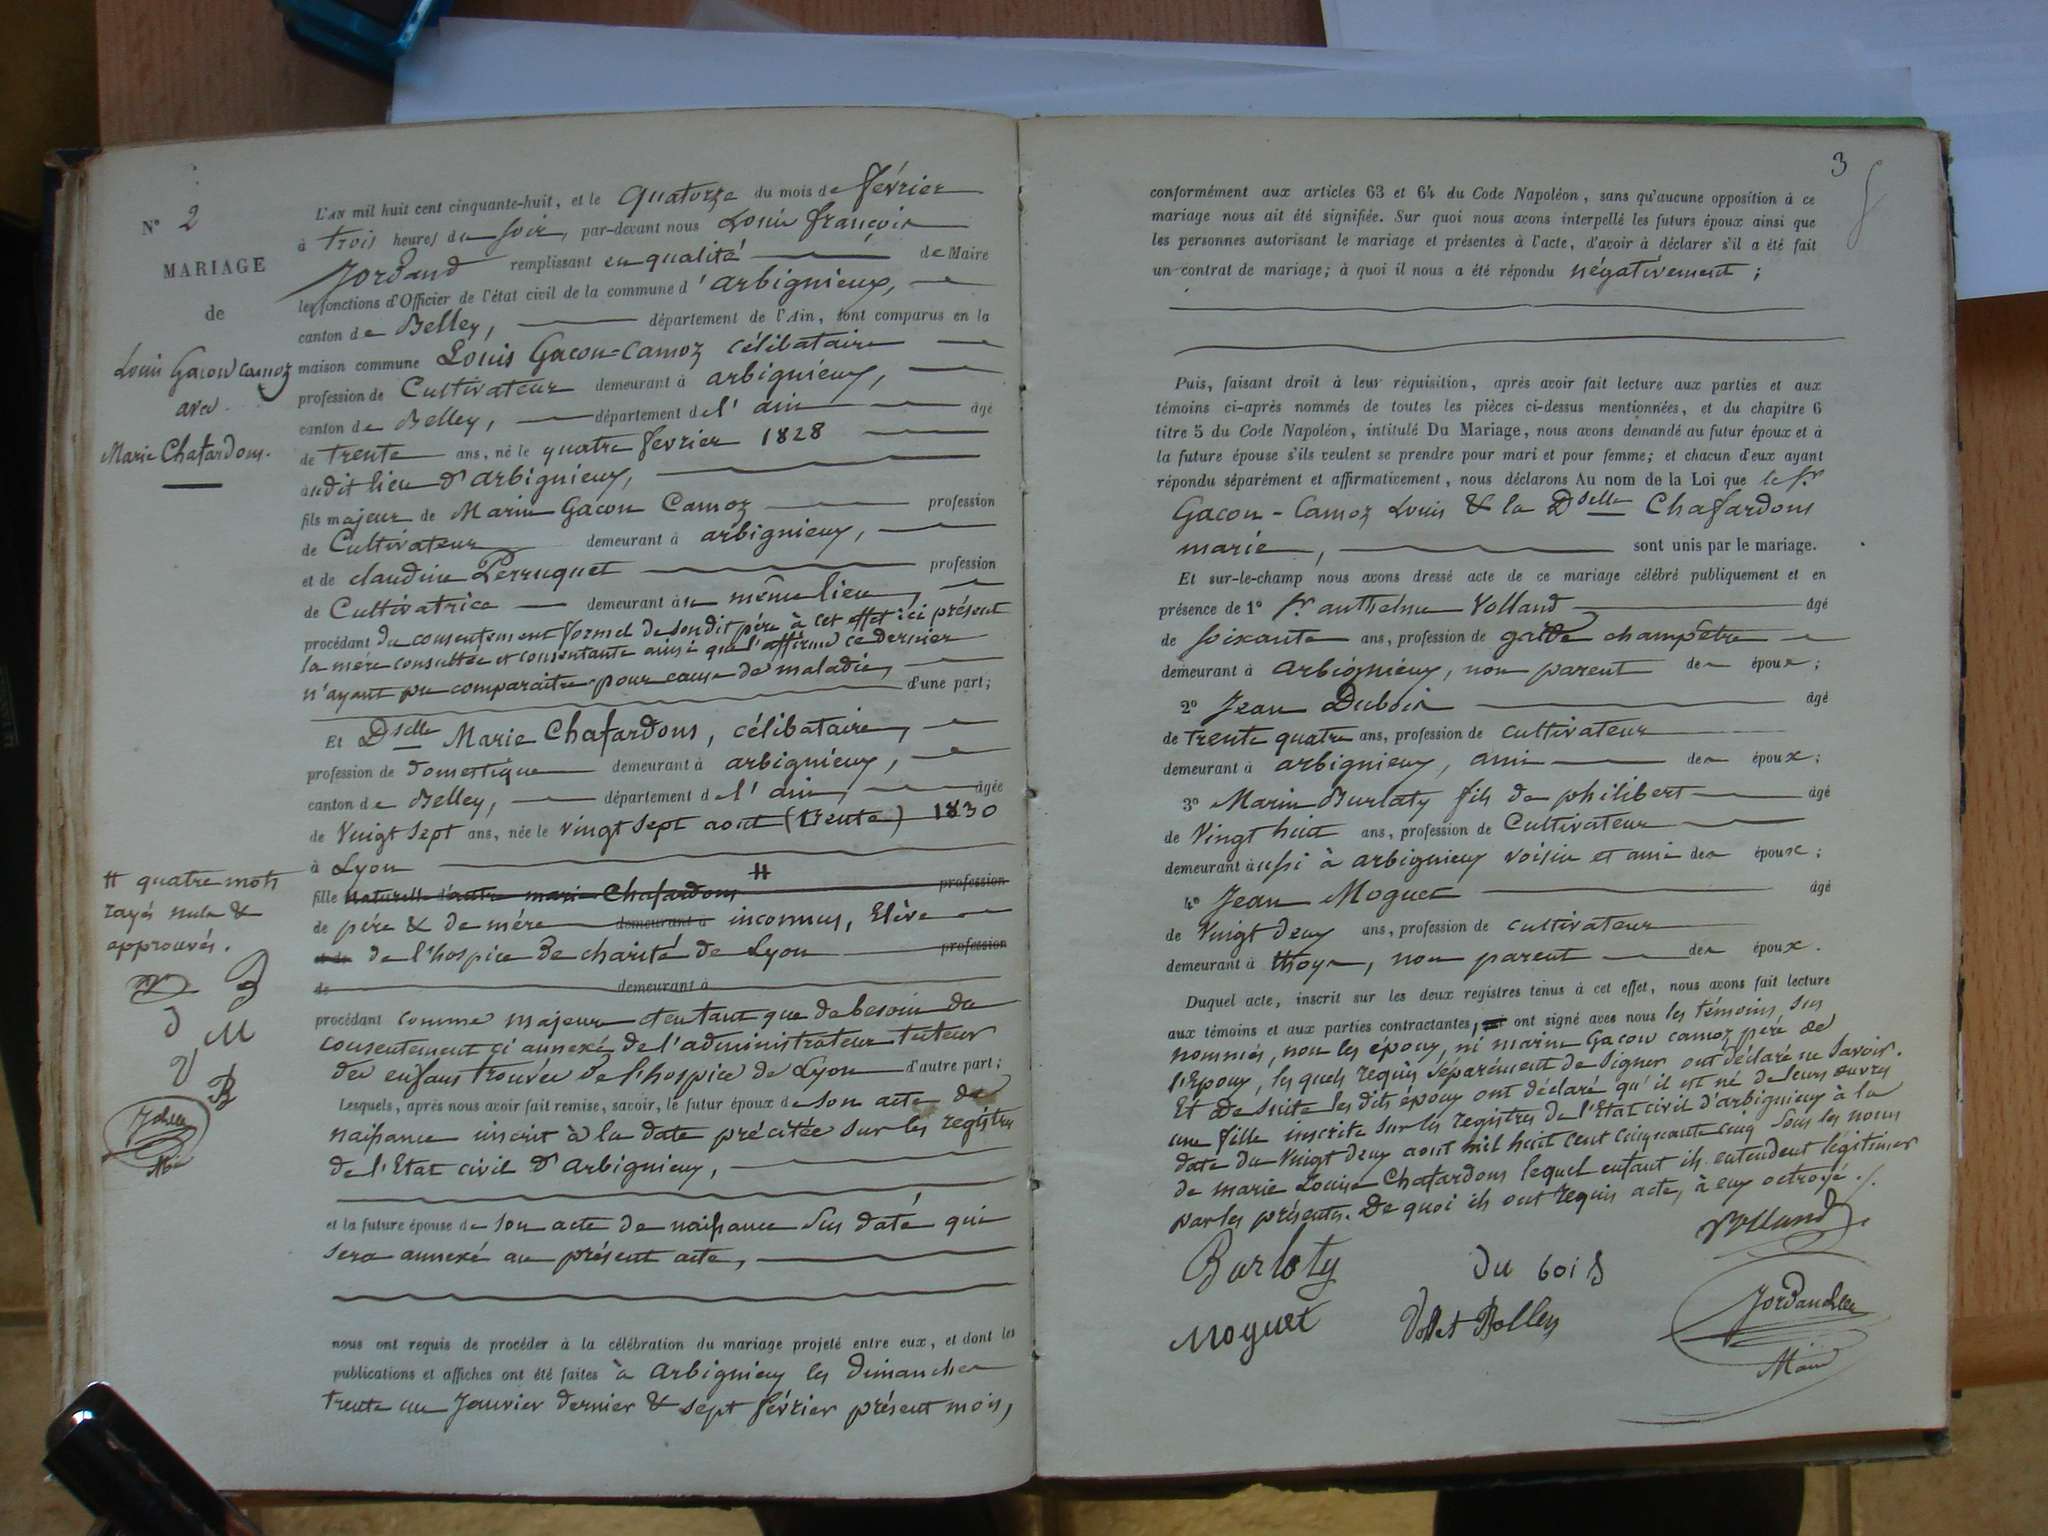 N° 2
MARIAGE
de
Louis Gacon camoz
avec
Marie Chafardons.
L'AN mil huit cent cinquante-huit, et le quatorze du mois de février
à trois heures du soir, par-devant nous Louis françois
Jordand remplissant en qualité de Maire
les fonctions d'Officier de l'état civil de la commune d'arbignieux,
canton de Belley, département de l'Ain, sont comparus en la
maison commune Louis Gacon-Camoz célibataire
profession de Cultivateur demeurant à arbignieux,
canton de Belley, département de l'ain âgé
de trente ans, né le quatre fevrier 1828
audit lieu d'arbignieux,
fils majeur de Marin Gacon Camoz profession
de Cultivateur demeurant à arbignieux,
et de claudine Perruquet profession
de Cultivatrice demeurant au même lieu,
procédant du consentement formel de son dit père à cet effet ici présent
la mère consultée et consentante ainsi que l'affirme ce dernier
n'ayant pu comparaitre pour cause de maladie,
d'une part;
Et Dselle Marie Chafardons, célibataire,
profession de domestique demeurant à arbignieux,
canton de Belley, département de l'ain, âgée
de vingt sept ans, née le vingt sept aout (trente) 1830
à Lyon
fille naturelle d'autre marie Chafardons # profession
de père & de mère demeurant à inconnus, Elève
et de de l'hospice de charité de Lyon profession
de demeurant à
procédant comme majeure et en tant que de besoin du
consentement ci annexé de l'administrateur tuteur
des enfans trouvés de l'hospice de Lyon d'autre part;
Lesquels, après nous avoir fait remise, savoir, le futur époux de son acte de
naissance inscrit à la date précitée sur les registres
de l'Etat civil d'Arbignieux,
et la future épouse de son acte de naissance sus daté qui
sera annexé au présent acte,
nous ont requis de procéder à la célébration du mariage projeté entre eux, et dont les
publications et affiches ont été faites à arbignieux les dimanches
trente un Janvier dernier & sept février présent mois,
# quatre mots
rayés nuls &
approuvés.
D M
V B
3
conformément aux articles 63 et 64 du Code Napoléon, sans qu'aucune opposition à ce
mariage nous ait été signifiée. Sur quoi nous avons interpellé les futurs époux ainsi que
les personnes autorisant le mariage et présentes à l'acte, d'avoir à déclarer s'il a été fait
un contrat de mariage; à quoi il nous a été répondu négativement;
Puis, faisant droit à leur réquisition, après avoir fait lecture aux parties et aux
témoins ci-après nommés de toutes les pièces ci-dessus mentionnées, et du chapitre 6
titre 5 du Code Napoléon, intitulé Du Mariage, nous avons demandé au futur époux et à
la future épouse s'ils veulent se prendre pour mari et pour femme; et chacun d'eux ayant
répondu séparément et affirmativement, nous déclarons Au nom de la Loi que le Sr
Gacon-Camoz Louis & la Dselle Chafardons
marie, sont unis par le mariage.
Et sur-le-champ nous avons dressé acte de ce mariage célébré publiquement et en
présence de 1° Sr anthelme Volland âgé
de soixante ans, profession de garde champêtre
demeurant à arbignieux, non parent des époux;
2° Jean Dubois âgé
de trente quatre ans, profession de cultivateur
demeurant à arbignieux, ami des époux;
3° Marin Burlaty fils de philibert âgé
de vingt huit ans, profession de Cultivateur
demeurant aussi à arbignieux voisin et ami des époux;
4° Jean Moguet âgé
de vingt deux ans, profession de cultivateur
demeurant à thoys, non parent des époux.
Duquel acte, inscrit sur les deux registres tenus à cet effet, nous avons fait lecture
aux témoins et aux parties contractantes, qui ont signé avec nous les témoins sus
nommés, non les époux, ni marin Gacon camoz père de
l'Epoux, les quels requis séparément de signer ont déclaré ne savoir.
Et de suite les dits époux ont déclaré qu'il est né de leurs œuvres
une fille inscrite sur les registres de l'Etat civil d'arbignieux à la
date du vingt deux aout mil huit cent cinquante cinq sous les noms
de marie Louise Chafardons lequel enfant ils entendent légitimer
par les présentes. De quoi ils ont requis acte, à eux octroyé.
Volland
Burlaty du bois
Moguet
Maire